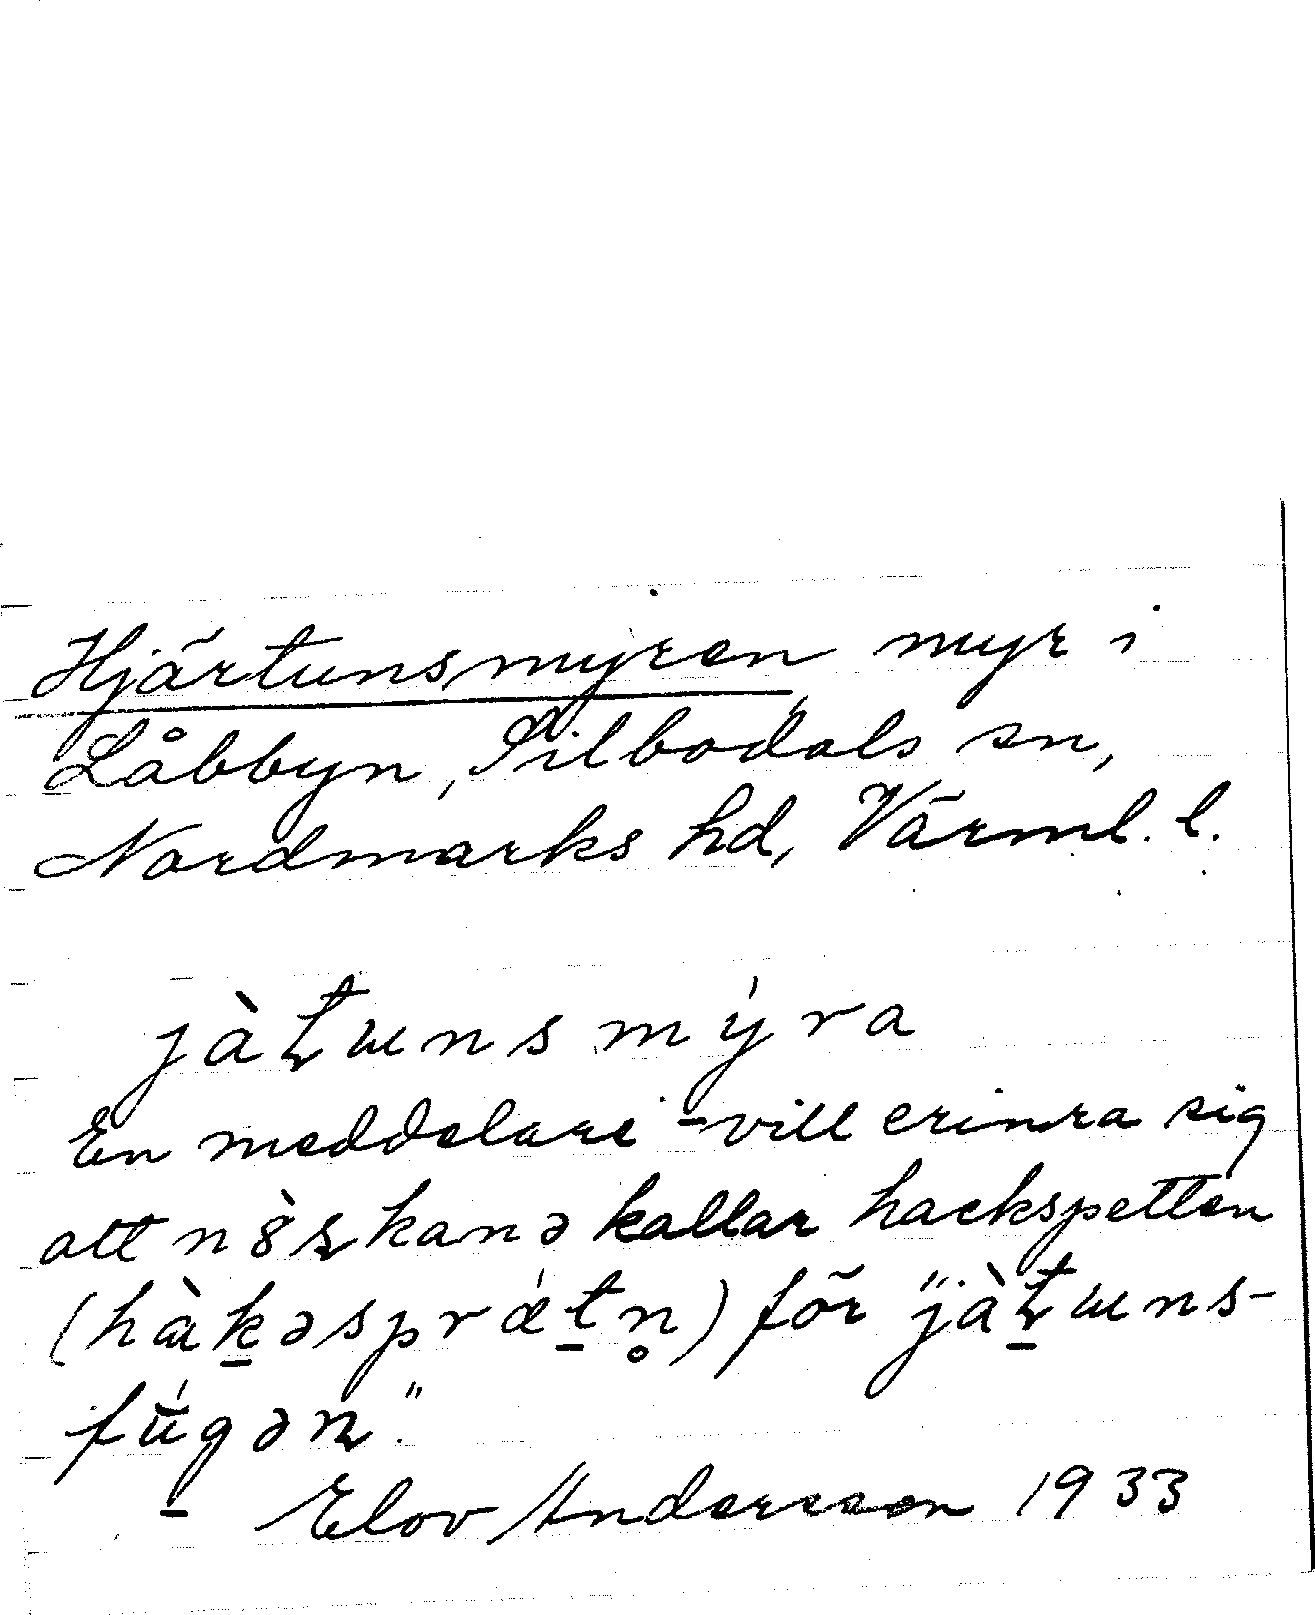 Hjärtunsmyren myr i
Låbbyn, Silbodals sn,
Nordmarks hd, Värml. l.
jàt̲unsmýra
En meddelare vill erinra sig
att kallar hackspetten
(hàk̲əsprǽt̲n̥) för "jàt̲uns-
fúgən."
- Elov Andersson 1933